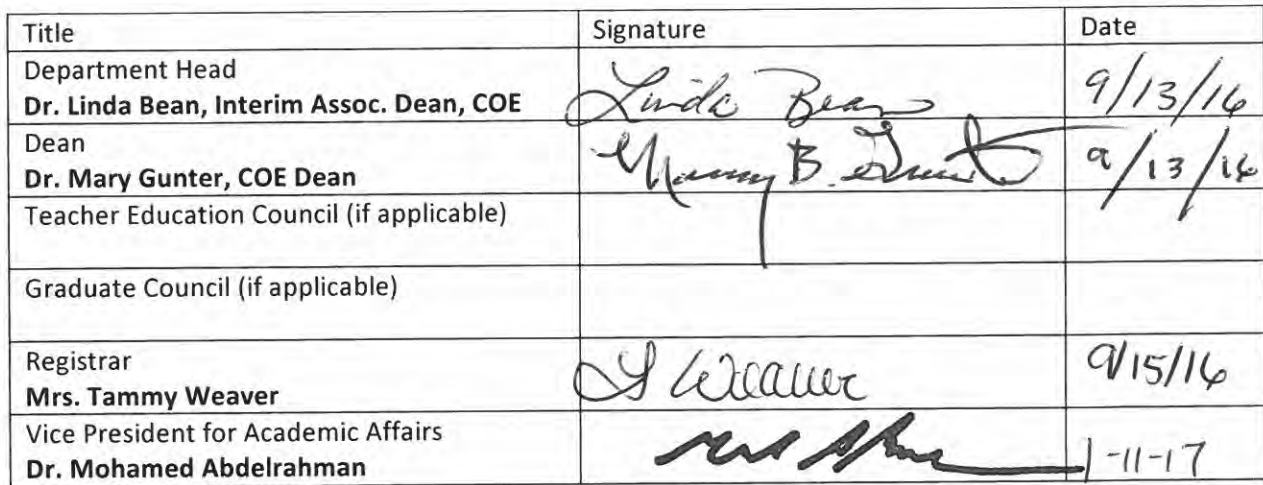 Title Signature Date
Department Head
Dr. Linda Bean, Interim Assoc. Dean, COE Linda Bean 9/13/16
Dean
Dr. Mary Gunter, COE Dean Mary B. Gunter 9/13/16
Teacher Education Council (if applicable)
Graduate Council (if applicable)
Registrar
Mrs. Tammy Weaver T Weaver 9/15/16
Vice President for Academic Affairs
Dr. Mohamed Abdelrahman 1-11-17